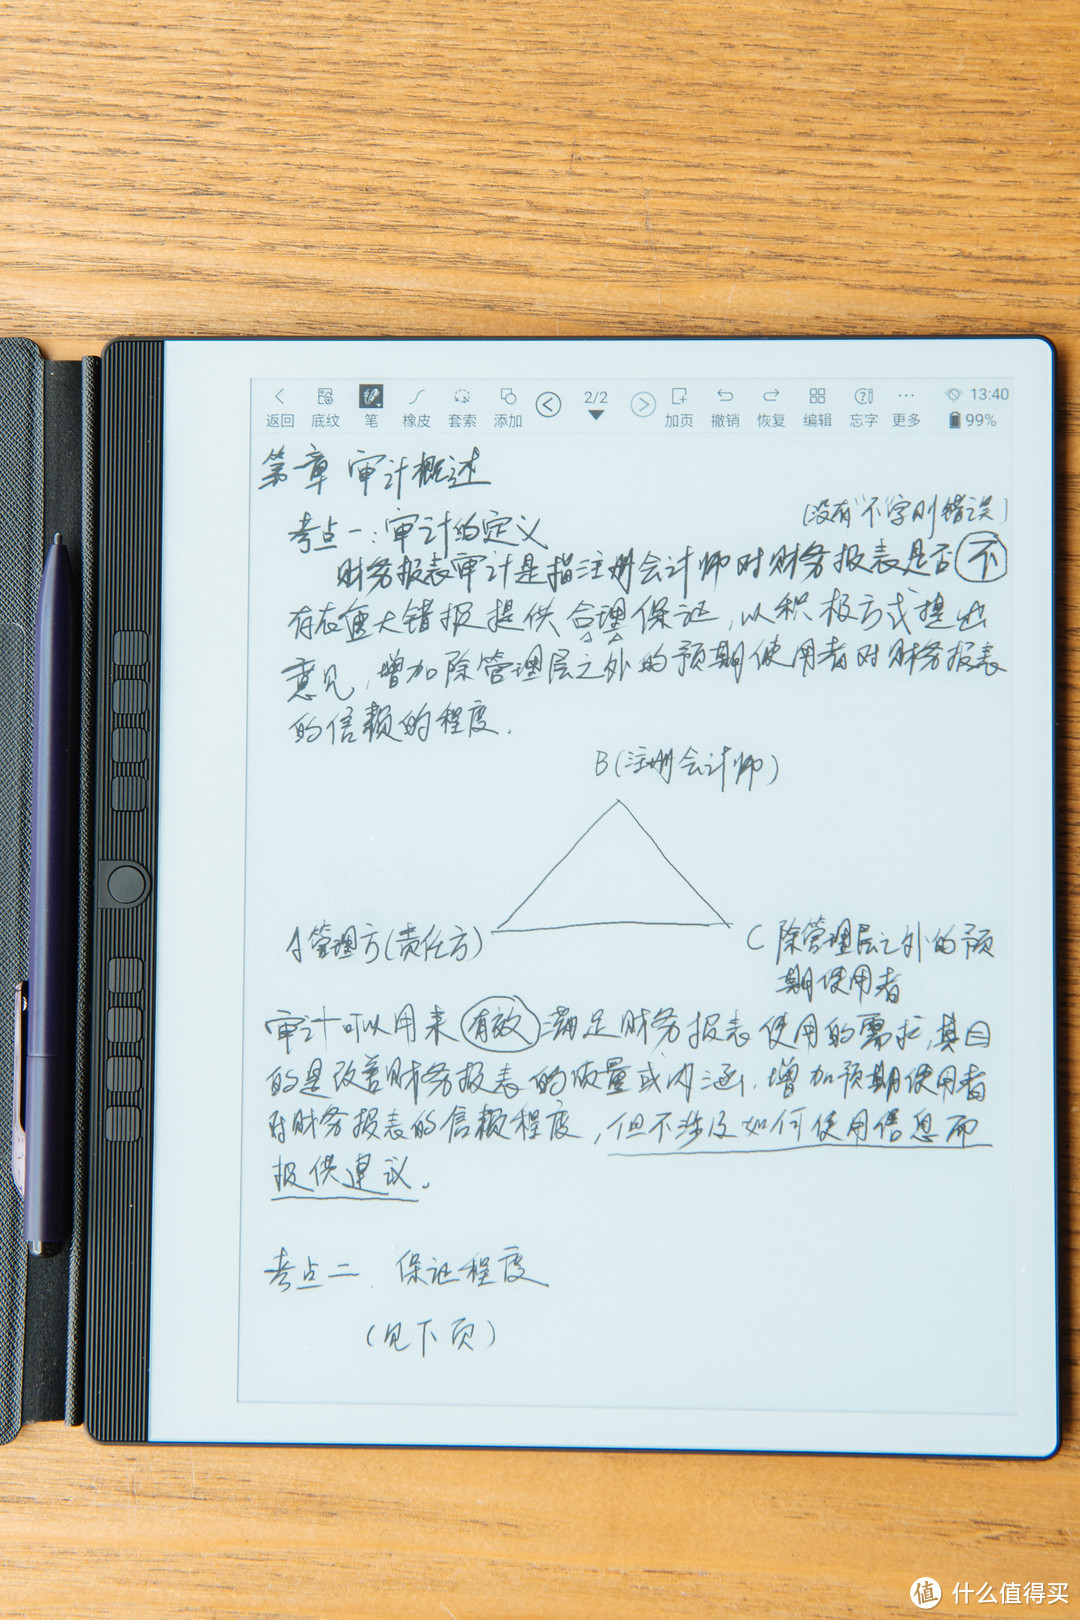 返回 底纹 笔 橡皮 套索 添加 2/2 加页 撤销 恢复 编辑 忘字 更多 13:40 99%
第一章 审计概述
考点一:审计的定义
(没有"不"字则错误)
财务报表审计是指注册会计师对财务报表是否不
存在重大错报提供合理保证,以积极方式提出
意见,增加除管理层之外的预期使用者对财务报表
的信赖的程度.
B(注册会计师)
A管理方(责任方)
C 除管理层之外的预
期使用者
审计可以用来有效满足财务报表使用的需求,其目
的是改善财务报表的质量或内涵,增加预期使用者
对财务报表的信赖程度,但不涉及如何使用信息而
提供建议.
考点二.保证程度
(见下页)
值 什么值得买